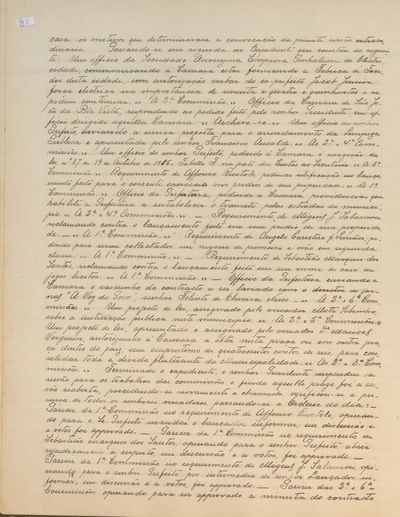 casa os motivos que determinaram a convocação da presente sessão extraor-
dinaria. Passando-se em seguida ao Expediente que constou do seguin-
te: Um officio da Sociedade Anonyma Empreza Imbahense de Electri-
cidade, communicando á Camara estar fornecendo á Fabrica de Teci-
dos desta cidade, com autorização verbal do ex-prefeito Jacob Junior,
força electrica na importancia de
podem continuar. A 2ª Commissão. Officio da Camara de São Jo-
ão da Bôa Vista, respondendo ao pedido feito pelo senhor Presidente, em of-
ficio dirigido aquella Camara. Archive-se. Um officio do senhor
Prefeito enviando a unica proposta para o arrendamento da Limpeza
Publica e apresentada pelo senhor Francisco Ansaldi. As 2ª e 4ª Com-
missões. Um officio do senhor Prefeito, pedindo á Camara a revogação da
lei nº 57 de 19 de Outubro de 1885. A 2ª
Commissão. Requerimento de Affonso Pivotola, pedindo rectificação no lança-
mento feito para o corrente exercicio um predio de sua propriedade. A 1ª
Commissão. Officio da Prefeitura, pedindo á Camara, providencias que
habilite a Prefeitura a restabelecer o transito pelas estradas do munici-
pio. As 2ª e 4ª Commissões. Requerimento de Miguel J. Salomão,
reclamando contra o lançamento feito em um predio de sua proprieda-
de. A 1ª Commissão. Requerimento de Angelo Canettieri & Irmãos, pe-
dindo para serem collectados em negocio de primeira e não em segunda
classe. A 1ª Commissão. Requerimento de Sebastião Marques dos
Santos, reclamando contra o lançamento feito em seu nome de casa de
jogos licitos. A 1ª Commissão. Officio da Prefeitura enviando a
Camara o rascunho do contracto a ser lavrado com o director do jor-
nal A Voz do Povo, senhor Silento de Oliveira. As 2ª e 6ª Com-
missões. Um projecto de lei, assignado pelo vereador Motta Sobrinho,
sobre a instrucção publica neste municipio. As 2ª e 5ª Commissões.
Um projecto de lei, apresentado e assignado pelo vereador Dr. Manoel
Cerqueira, autorizando a Camara a obter nesta praça ou em outra pra-
ça dentro do paiz, um emprestimo de quinhentos contos de reis, para con-
solidar toda a divida fluctuante da municipalidade. As 2ª e 5ª Com-
missões. Terminado o expediente, o senhor Presidente suspendeu a
sessão para os trabalhos das commissões e findo aquelle prazo foi a ses-
são reaberta, procedendo-se novamente a chamada, verificou-se a pre-
sença de todos os senhores vereadores, passando-se á Ordem do dia:
Parecer da 1ª Commissão no requerimento de Affonso Pivotola, opinan-
do para o Sr. Prefeito mandar o lançador informar; em discussão e
a votos, foi approvado. Parecer da 1ª Commissão no requerimento de
Sebastião Marques dos Santos, opinando para o senhor Prefeito abrir
syndicancia a respeito, em discussão e a votos, foi approvado.
Parecer da 1ª Commissão no requerimento de Miguel J. Salomão, opi-
nando para o senhor Prefeito por intermedio do senhor Lançador, in-
formar, em discussão e a votos, foi approvado. Parecer das 2ª e 6ª
Commissões opinando para ser approvado a minuta do contracto